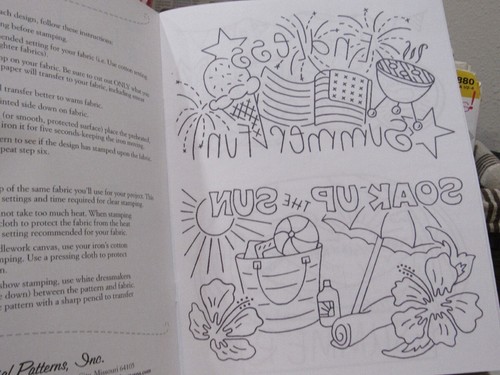 ach design, follow these instructions:
ng before stamping.
ended setting for your fabric (i.e. Use cotton setting
ghter fabrics).
mp on your fabric. Be sure to cut out ONLY what you
paper will transfer to your fabric, including
l transfer better to warm fabric.
inted side down on fabric.
(or smooth, protected surface) place the preheated
iron it for five seconds keeping the iron moving
ern to see if the design has stamped upon the fabric.
peat step six.
p of the same fabric you'll use for your project. This
settings and time required for clear stamping.
not take too much heat. When stamping
cloth to protect the fabric from the heat
setting recommended for your fabric.
dlework canvas, use your iron's cotton
mping. Use a pressing cloth to protect
n.
show stamping, use white dressmakers
e down) between the pattern and fabric.
e pattern with a sharp pencil to transfer
al Patterns, Inc.
Missouri 64105
Endless
Summer Fun
SOAK UP THE SUN
980